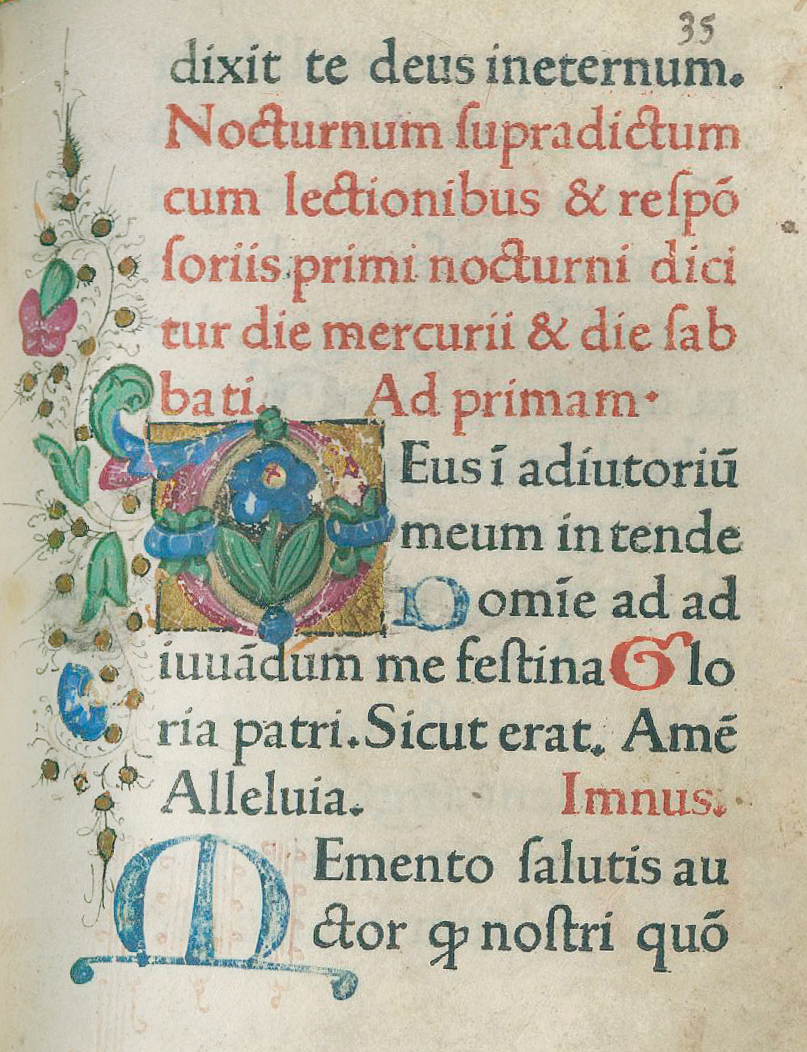 35
dixit te deus ineternum.
Nocturnum ſupradictum
cum lectionibus & reſpō
ſoriis primi nocturni dici
tur die mercurii & die ſab
bati. Ad primam·
DEus ī adiutoriū
meum intende
Domīe ad ad
iuuādum me feſtina Glo
ria patri. Sicut erat. Amē
Alleluia. Imnus.
MEmento ſalutis au
ctor ꝙ noſtri quō